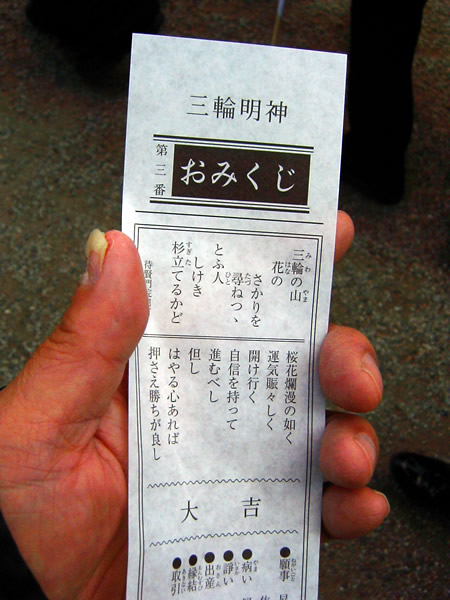 三輪明神
第三番
おみくじ
三輪の山
花の
さかりを
尋ねつゝ
とふ人
しけき
杉立てるかど
待賢門
桜花爛漫の如く
運気賑々しく
開け行く
自信を持って
進むべし
但し
はやる心あれば
押さえ勝ちが良し
大吉
●願事
●病い
●諍い
●出産
●縁結
●取引